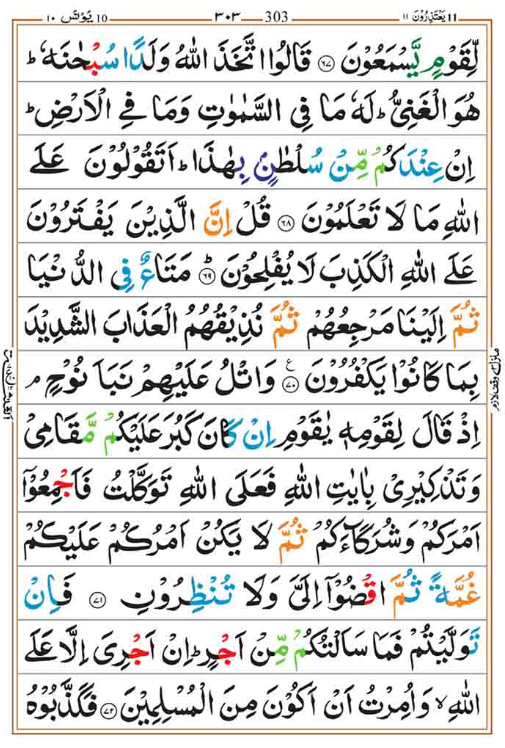 ١١ يَعْتَذِرُوْنَ 11
303 ٣٠٣
10 يُوْنُس ١٠
لِّقَوْمٍ يَّسْمَعُوْنَ ۝٦٧ قَالُوا اتَّخَذَ اللّٰهُ وَلَدًا سُبْحٰنَهٗ ؕ
هُوَ الْغَنِیُّ ؕ لَهٗ مَا فِی السَّمٰوٰتِ وَمَا فِی الْاَرْضِ ؕ
اِنْ عِنْدَكُمْ مِّنْ سُلْطٰنٍۭ بِهٰذَا ؕ اَتَقُوْلُوْنَ عَلَی
اللّٰهِ مَا لَا تَعْلَمُوْنَ ۝٦٨ قُلْ اِنَّ الَّذِیْنَ یَفْتَرُوْنَ
عَلَی اللّٰهِ الْكَذِبَ لَا یُفْلِحُوْنَ ؕ۝٦٩ مَتَاعٌ فِی الدُّنْیَا
ثُمَّ اِلَیْنَا مَرْجِعُهُمْ ثُمَّ نُذِیْقُهُمُ الْعَذَابَ الشَّدِیْدَ
بِمَا كَانُوْا یَكْفُرُوْنَ ۝٧٠ ع وَاتْلُ عَلَیْهِمْ نَبَاَ نُوْحٍ ۘ
اِذْ قَالَ لِقَوْمِهٖ یٰقَوْمِ اِنْ كَانَ كَبُرَ عَلَیْكُمْ مَّقَامِیْ
وَتَذْكِیْرِیْ بِاٰیٰتِ اللّٰهِ فَعَلَی اللّٰهِ تَوَكَّلْتُ فَاَجْمِعُوْۤا
اَمْرَكُمْ وَشُرَكَآءَكُمْ ثُمَّ لَا یَكُنْ اَمْرُكُمْ عَلَیْكُمْ
غُمَّةً ثُمَّ اقْضُوْۤا اِلَیَّ وَلَا تُنْظِرُوْنِ ۝٧١ فَاِنْ
تَوَلَّیْتُمْ فَمَا سَاَلْتُكُمْ مِّنْ اَجْرٍ ؕ اِنْ اَجْرِیَ اِلَّا عَلَی
اللّٰهِ ۙ وَاُمِرْتُ اَنْ اَكُوْنَ مِنَ الْمُسْلِمِیْنَ ۝٧٢ فَكَذَّبُوْهُ